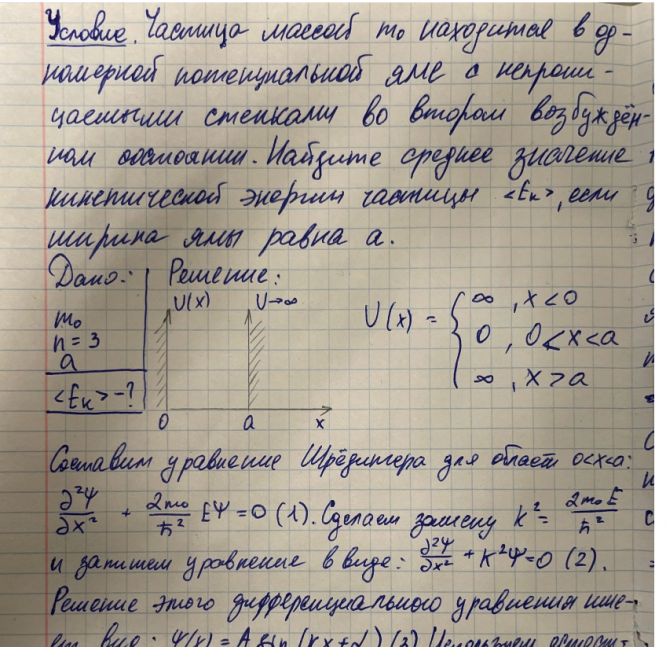 Условие. Частица массой m₀ находится в од-
номерной потенциальной яме с непрони-
цаемыми стенками во втором возбуждён-
ном состоянии. Найдите среднее значение
кинетической энергии частицы <Eₖ>, если
ширина ямы равна a.
Дано: Решение:
m₀
n = 3
a
<Eₖ> - ?
U(x) U→∞
0 a x
U(x) = { ∞, x < 0
0, 0 < x < a
∞, x > a
Составим уравнение Шрёдингера для област 0<x<a:
∂²Ψ/∂x² + 2m₀/ħ² EΨ = 0 (1). Сделаем замену k² = 2m₀E/ħ²
и запишем уравнение в виде: ∂²Ψ/∂x² + k²Ψ = 0 (2).
Решение этого дифференциального уравнения име-
ет вид: Ψ(x) = A sin (kx + α) (3) Используем